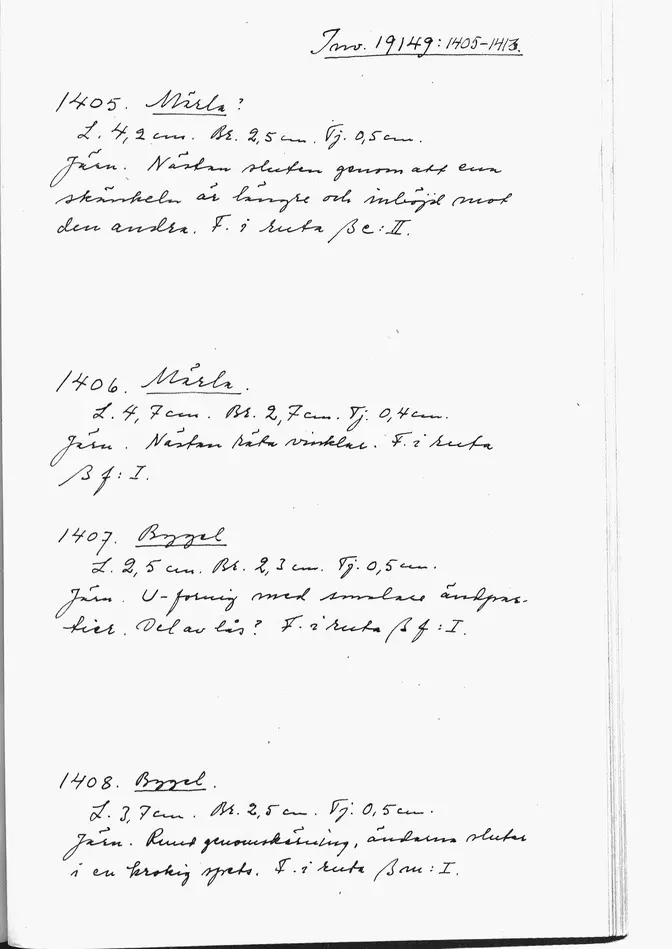 Inv. 19149:1405-1413.
1405. Märla?
L. 4,2 cm. Br. 2,5 cm. Tj. 0,5 cm.
Järn. Nästan sluten genom att ena
skänkeln är längre och inböjd mot
den andra. F. i ruta β e:II.
1406. Märla.
L. 4,7 cm. Br. 2,7 cm. Tj. 0,4 cm.
Järn. Nästan räta vinklar. F. i ruta
β f:I.
1407. Bygel
L. 2,5 cm. Br. 2,3 cm. Tj. 0,5 cm.
Järn. U-formig med smalare ändpar-
tier. Del av lås? F. i ruta β f:I.
1408. Bygel.
L. 3,7 cm. Br. 2,5 cm. Tj. 0,5 cm.
Järn. Rund genomskärning, ändarna slutar
i en krokig spets. F. i ruta β m:I.